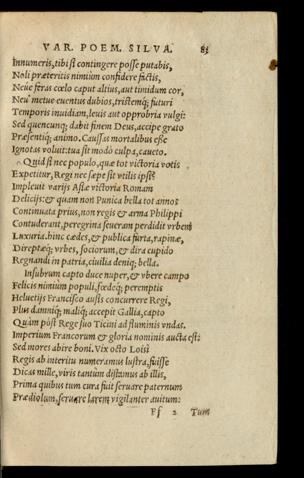 VAR. POEM. SILVA. 83
Innumeris, tibi si contingere posse putabis,
Noli præteritis nimiùm confidere factis,
Neue feras cœlo caput altius, aut timidum cor,
Neu metue euentus dubios, tristemq; futuri
Temporis inuidiam, leuis aut opprobria vulgi:
Sed quencunq; dabit finem Deus, accipe grato
Præsentiq; animo. Caussas mortalibus esse
Ignotas voluit: tua sit modò culpa, caueto.
Quid si nec populo, quæ tot victoria votis
Expetitur, Regi nec sæpe sit vtilis ipsi?
Impleuit varijs Asiæ victoria Romam
Delicijs: & quam non Punica bella tot annos
Continuata prius, non regis & arma Philippi
Contuderant, peregrina seueram perdidit vrbem
Luxuria. hinc cædes, & publica furta, rapinæ,
Direptæq; vrbes, sociorum, & dira cupido
Regnandi in patria, ciuilia deniq; bella.
Insubrum capto duce nuper, & vbere campo
Felicis nimiùm populi, fœdeq; peremptis
Heluetijs Francisco ausis concurrere Regi,
Plus damniq; maliq; accepit Gallia, capto
Quàm pòst Rege suo Ticini ad fluminis vndas.
Imperium Francorum & gloria nominis aucta est:
Sed mores abire boni. Vix octo Loisi
Regis ab interitu numeramus lustra, fuisse
Dicas mille, viris tantùm distamus ab illis,
Prima quibus tum cura fuit seruare paternum
Prædiolum, seruare larem vigilanter auitum:
Ff 2 Tum